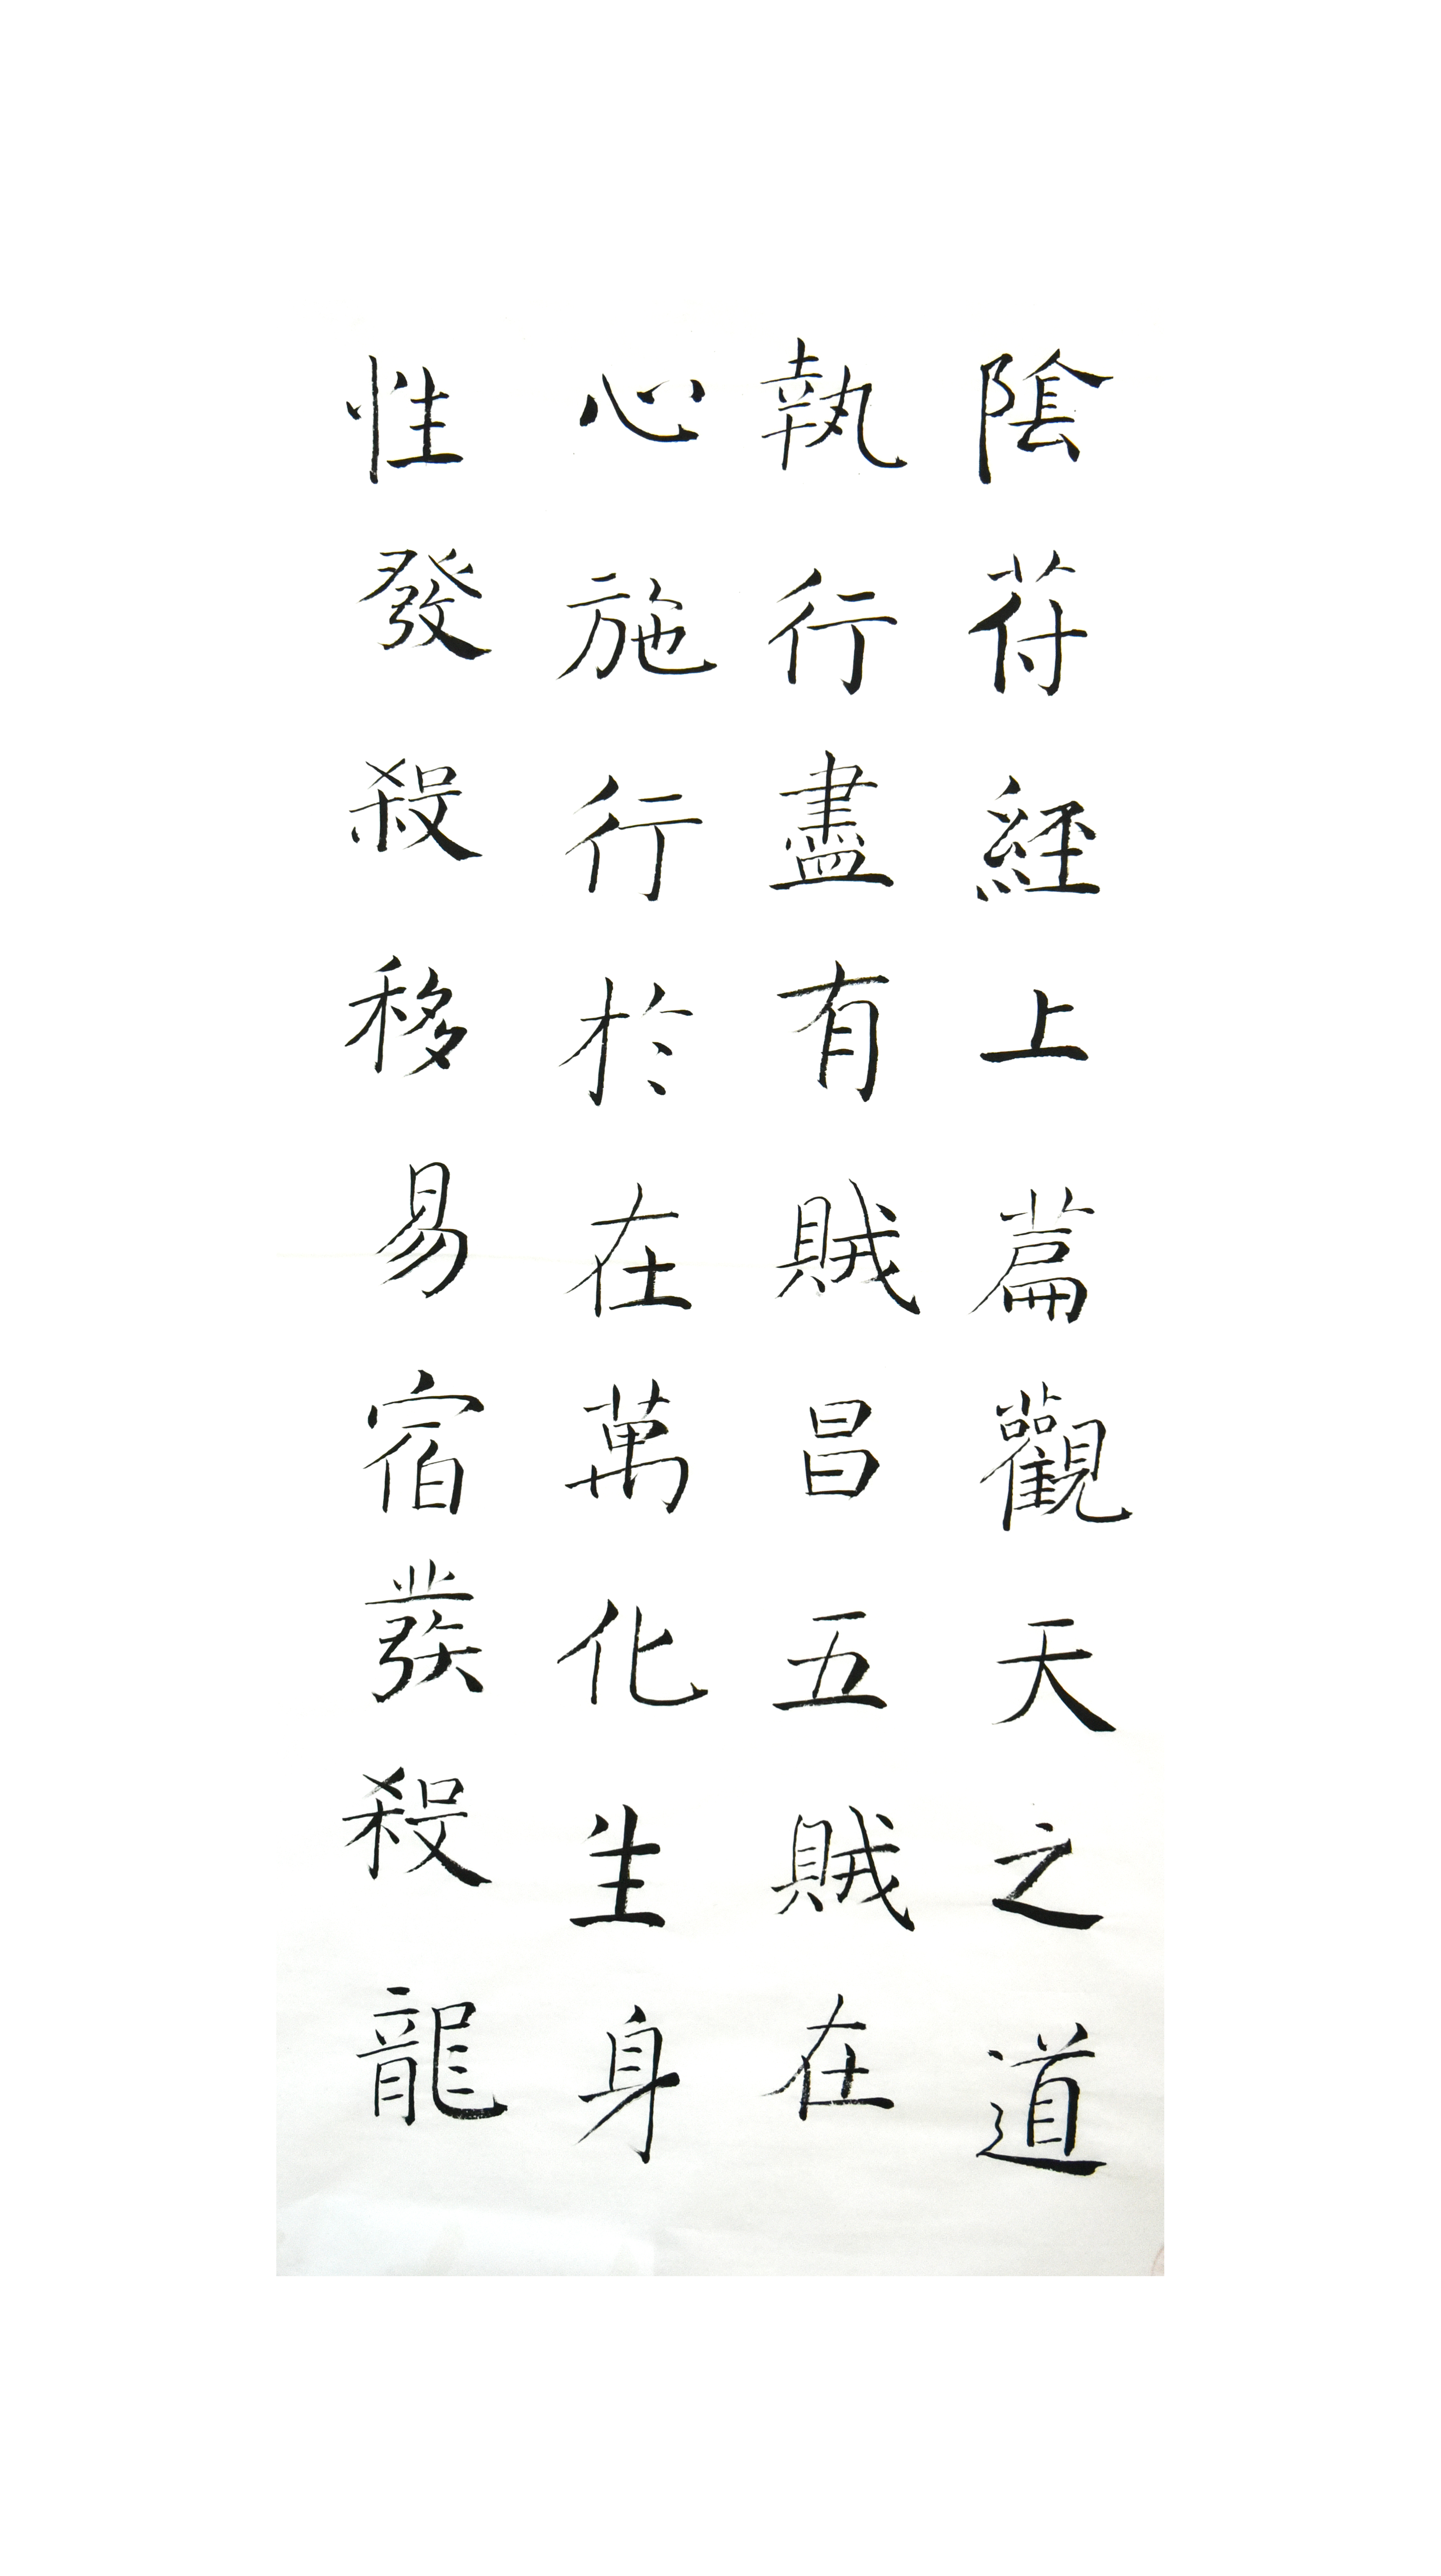 陰苻經上萹觀天之道
執行盡有賊昌五賊在
心施行於在萬化生身
性發殺移易宿發殺龍